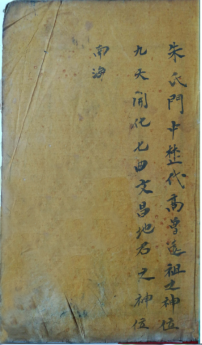 朱氏門中歷代高曾遠祖之神位
九天開化七曲文昌地名之神位
南海